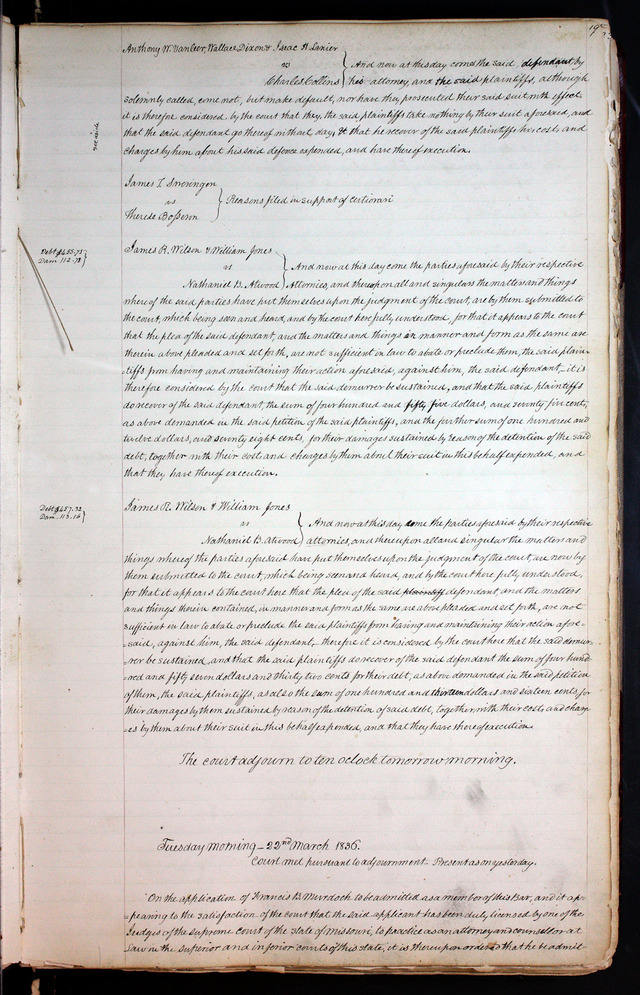 195
Anthony W. Vanleer, Wallace Dixon & Isaac H Lanier
vs
Charles Collins
And now at this day comes the said defendant by
his attorney, and the said plaintiffs, although
solemnly called, come not, but make default, nor have they prosecuted their said suit with effect
it is therefore considered by the court that they, the said plaintiffs take nothing by their suit aforesaid, and
that the said defendant go thereof without day, & that he recover of the said plaintiffs his costs and
charges by him about his said defence expended, and have thereof execution.
James T. Sweringen
vs
Therese Bosseron
Reasons filed in support of certiorari
Debt $455.75
Dam 112.78
James R. Wilson & William Jones
vs
Nathaniel B. Atwood
And now at this day come the parties aforesaid by their respective
Attornies, and thereupon all and singular the matters and things
where of the said parties have put themselves upon the judgment of the court, are by them submitted to
the court, which being seen and heard, and by the court here fully understood, for that it appears to the court
that the plea of the said defendant, and the matters and things in manner and form as the same are
therein above pleaded and set forth, are not sufficient in law to abate or preclude them, the said plain-
tiffs from having and maintaining their action aforesaid, against him, the said defendant, – it is
therefore considered by the court that the said demurrer be sustained, and that the said plaintiffs
do recover of the said defendant, the sum of four hundred and fifty five dollars, and seventy five cents,
as above demanded in the said petition of the said plaintiffs, and the further sum of one hundred and
twelve dollars, and seventy eight cents, for their damages sustained by reason of the detention of the said
debt, together with their cost and charges by them about their suit in this behalf expended, and
that they have thereof execution.
Debt $457.32
Dam. 113.16
James R. Wilson & William Jones
vs
Nathaniel B. Atwood
And now at this day come the parties aforesaid by their respective
attornies, and thereupon all and singular the matters and
things where of the parties aforesaid have put themselves upon the judgment of the court, are now by
them submitted to the court, which being seen and heard, and by the court here fully understood,
for that it appears to the court here that the plea of the said plaintiff defendant, and the matters
and things therein contained, in manner and form as the same are above pleaded and set forth, are not
sufficient in law to abate or preclude the said plaintiffs from having and maintaining their action afore-
-said, against him, the said defendant, – therefore it is considered by the court here that the said demur-
-rer be sustained, and that the said plaintiffs do recover of the said defendant the sum of four hund-
-red and fifty seven dollars and thirty two cents for their debt, as above demanded in the said petition
of them, the said plaintiffs, as also the sum of one hundred and thirteen dollars and sixteen cents, for
their damages by them sustained by reason of the detention of said debt, together, with their costs and charg-
-es by them about their suit in this behalf expended, and that they have thereof execution.
The court adjourn to ten oclock tomorrow morning.
Tuesday Morning – 22nd March 1836.
Court met pursuant to adjournment – Present as on yesterday.
On the application of Francis B. Murdoch to be admitted as a member of this Bar, and it ap-
-pearing to the satisfaction of the court that the said applicant has been duly licensed by one of the
Judges of the supreme court of the state of Missouri, to practice as an attorney and counsellor at
Law in the superior and inferior courts of this state, it is thereupon ordered that he be admit-